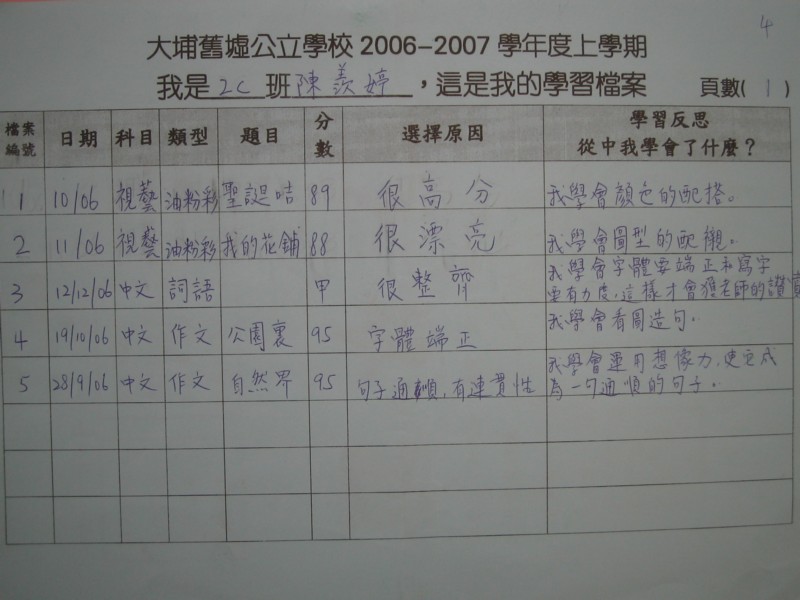 4
大埔舊墟公立學校 2006-2007 學年度上學期
我是 2C 班 陳羨婷 ，這是我的學習檔案 頁數( 1 )
檔案編號 日期 科目 類型 題目 分數 選擇原因 學習反思 從中我學會了什麼？
1 10/06 視藝 油粉彩 聖誕咭 89 很高分 我學會顏色的配搭。
2 11/06 視藝 油粉彩 我的花鋪 88 很漂亮 我學會圖型的配襯。
3 12/12/06 中文 詞語 甲 很整齊 我學會字體要端正和寫字
要有力度，這樣才會獲老師的讚賞
4 19/10/06 中文 作文 公園裏 95 字體端正 我學會看圖造句。
5 28/9/06 中文 作文 自然界 95 句子通順，有連貫性 我學會運用想像力，使完成
為一句通順的句子。